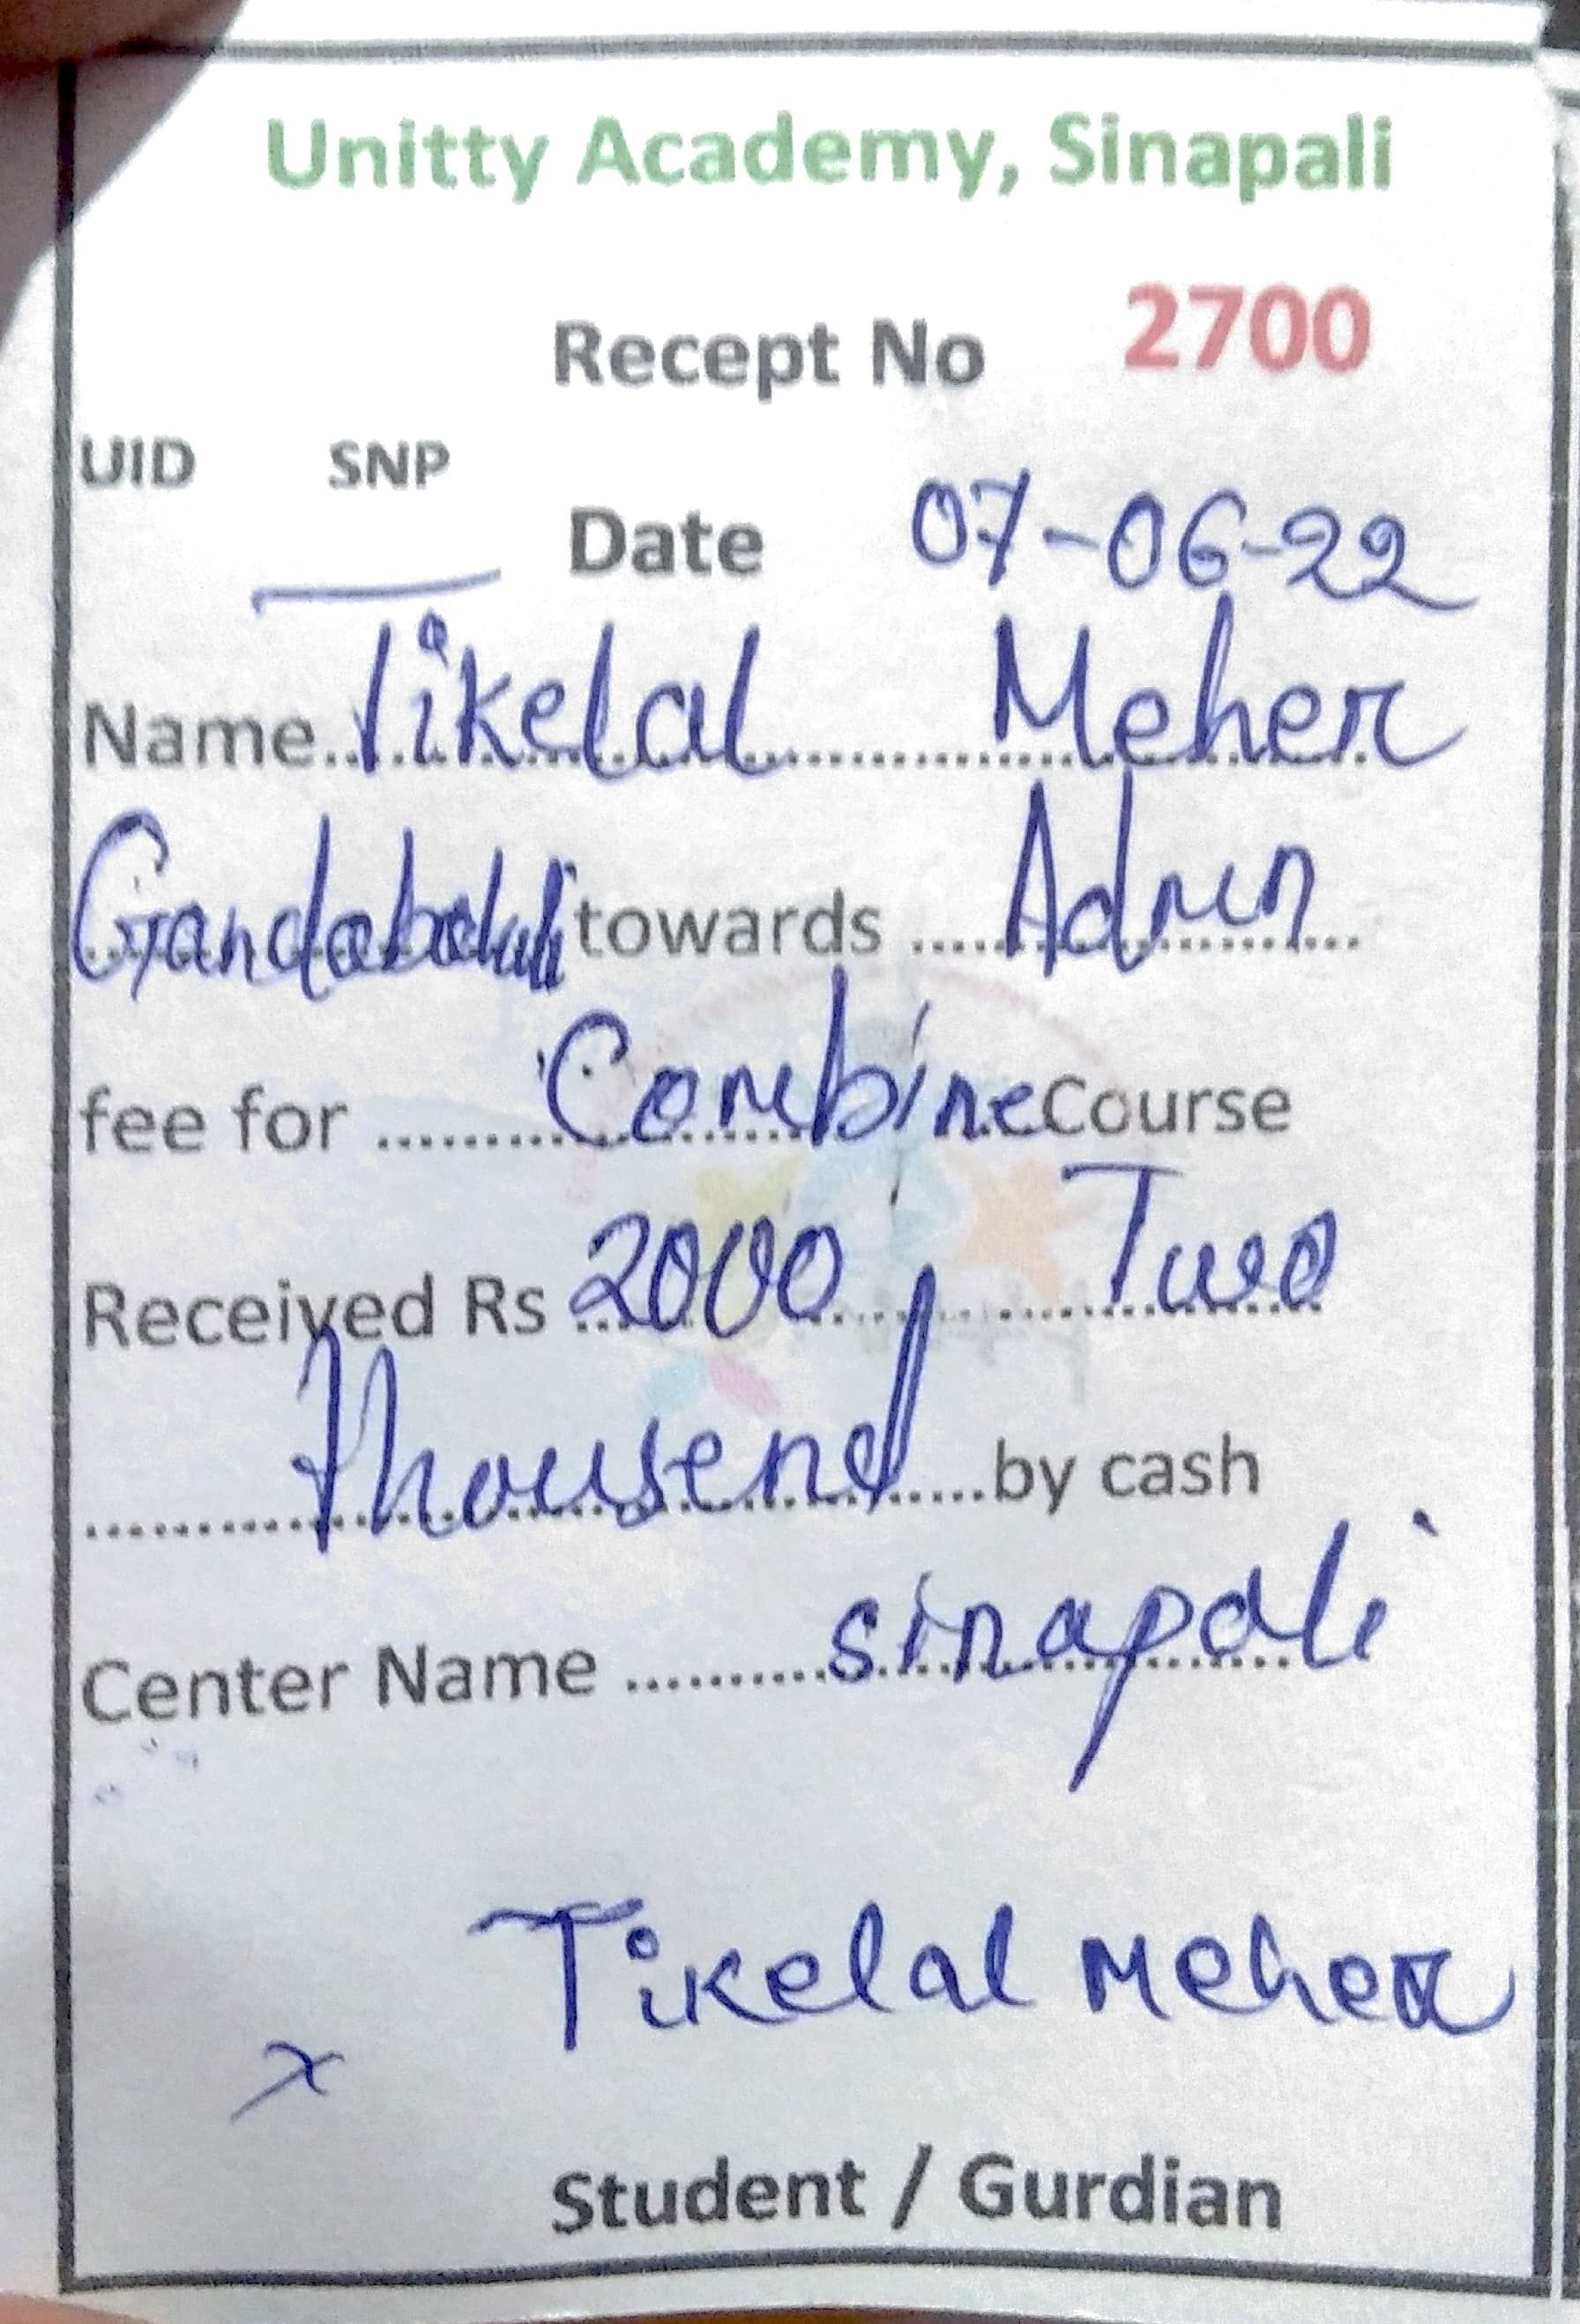 Unitty Academy, Sinapali
Recept No 2700
UID SNP
Date 07-06-22
Name Tikelal Meher
towards Admn
fee for Combine Course
Received Rs 2000, Two
thousend by cash
Center Name sinapali
Tikelal Meher
x
Student / Gurdian